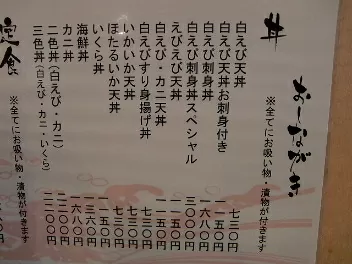 おしながき
丼
※全てにお吸い物・漬物が付きます
白えび天丼 七三〇円
白えび天丼お刺身付き 一一五〇円
白えび刺身丼 一六八〇円
白えび刺身丼スペシャル 三〇〇〇円
えびえび天丼 一一五〇円
白えび・カニ天丼 一一五〇円
白えびすり身揚げ丼 七三〇円
いかいか天丼 七三〇円
ほたるいか天丼
いくら丼
海鮮丼 一六八〇円
カニ丼
二色丼(白えび・カニ)
三色丼(白えび・カニ・いくら) 二二〇〇円
定食
※全てにお吸い物・漬物が